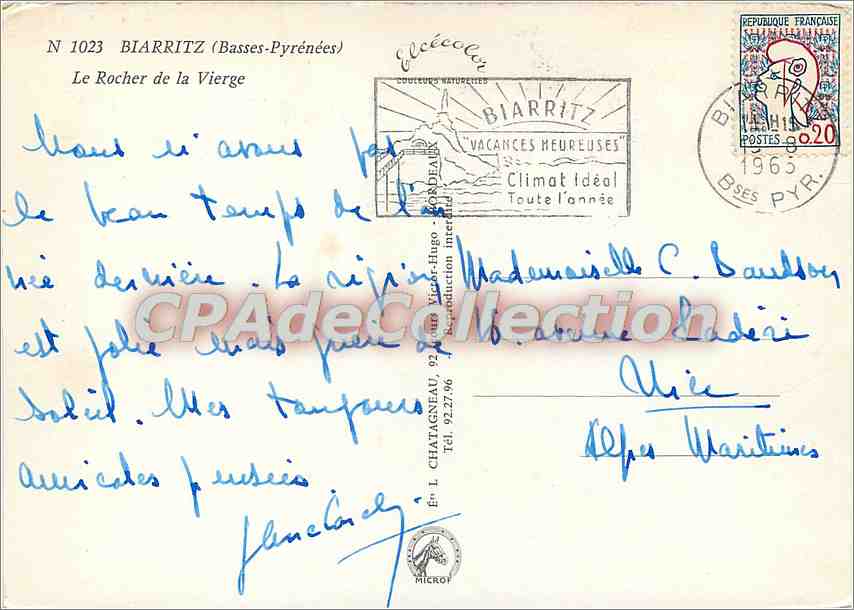 N 1023 BIARRITZ (Basses-Pyrénées)
Le Rocher de la Vierge
Elcécolor
COULEURS NATURELLES
BIARRITZ
"VACANCES HEUREUSES"
Climat Idéal
Toute l'année
REPUBLIQUE FRANÇAISE
POSTES 0.20
BIARRITZ
1963
BSES PYR.
Nous n'avons pas
le beau temps de l'an
née dernière. La région
est jolie mais peu de
soleil. Mes toujours
amicales pensées
Mademoiselle C.
avenue
Nice
Alpes Maritimes
CPAdeCollection
Én L. CHATAGNEAU, 92, Cours Victor-Hugo - BORDEAUX
Tél. 92.27.96
Reproduction interdite